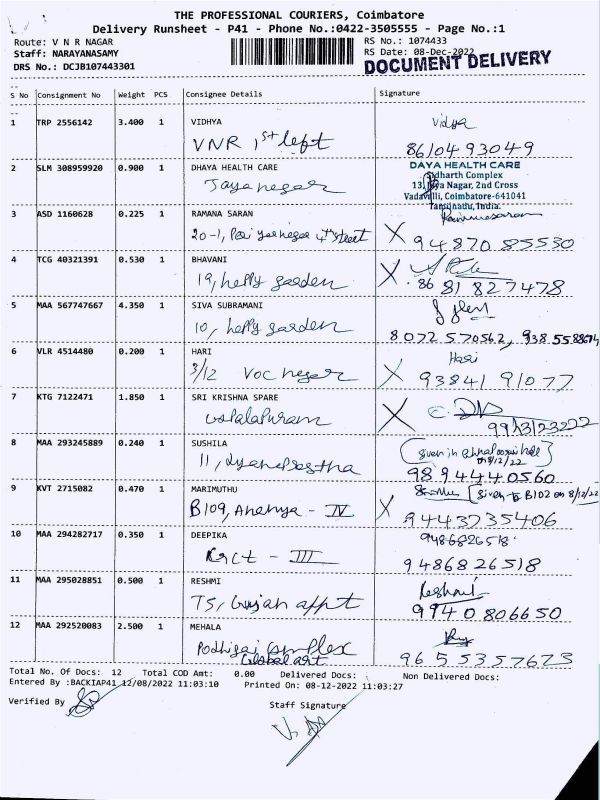 THE PROFESSIONAL COURIERS, Coimbatore
Delivery Runsheet - P41 - Phone No.:0422-3505555 - Page No.:1
Route: V N R NAGAR RS No.: 1074433
Staff: NARAYANASAMY RS Date: 08-Dec-2022
DRS No.: DCJB107443301 DOCUMENT DELIVERY
S No Consignment No Weight PCS Consignee Details Signature
1 TRP 2556142 3.400 1 VIDHYA Vidya
VNR 1st left 8610493049
2 SLM 308959920 0.900 1 DHAYA HEALTH CARE DAYA HEALTH CARE
Jayanagar Sidharth Complex
13, Jaya Nagar, 2nd Cross
Vadavalli, Coimbatore-641041
Tamilnadu, India.
3 ASD 1160628 0.225 1 RAMANA SARAN
20-1, 4th street X 9487085530
4 TCG 40321391 0.530 1 BHAVANI
19, happy garden X 8681827478
5 MAA 567747667 4.350 1 SIVA SUBRAMANI
10, happy garden 8072570562,
6 VLR 4514480 0.200 1 HARI Hari
3/12 VOC nagar X 9384191077
7 KTG 7122471 1.850 1 SRI KRISHNA SPARE
X
8 MAA 293245889 0.240 1 SUSHILA Given in
8/12/22
11, 9894440560
9 KVT 2715082 0.470 1 MARIMUTHU Given to B102 on 8/12/22
B109, Ananya - IV X 9443735406
10 MAA 294282717 0.350 1 DEEPIKA 9486826518
- III 9486826518
11 MAA 295028851 0.500 1 RESHMI Reshmi
T5, appt 9940806650
12 MAA 292520083 2.500 1 MEHALA
Podhigai Complex 9655357673
Global art
Total No. Of Docs: 12 Total COD Amt: 0.00 Delivered Docs: Non Delivered Docs:
Entered By :BACKIAP41 12/08/2022 11:03:10 Printed On: 08-12-2022 11:03:27
Verified By Staff Signature